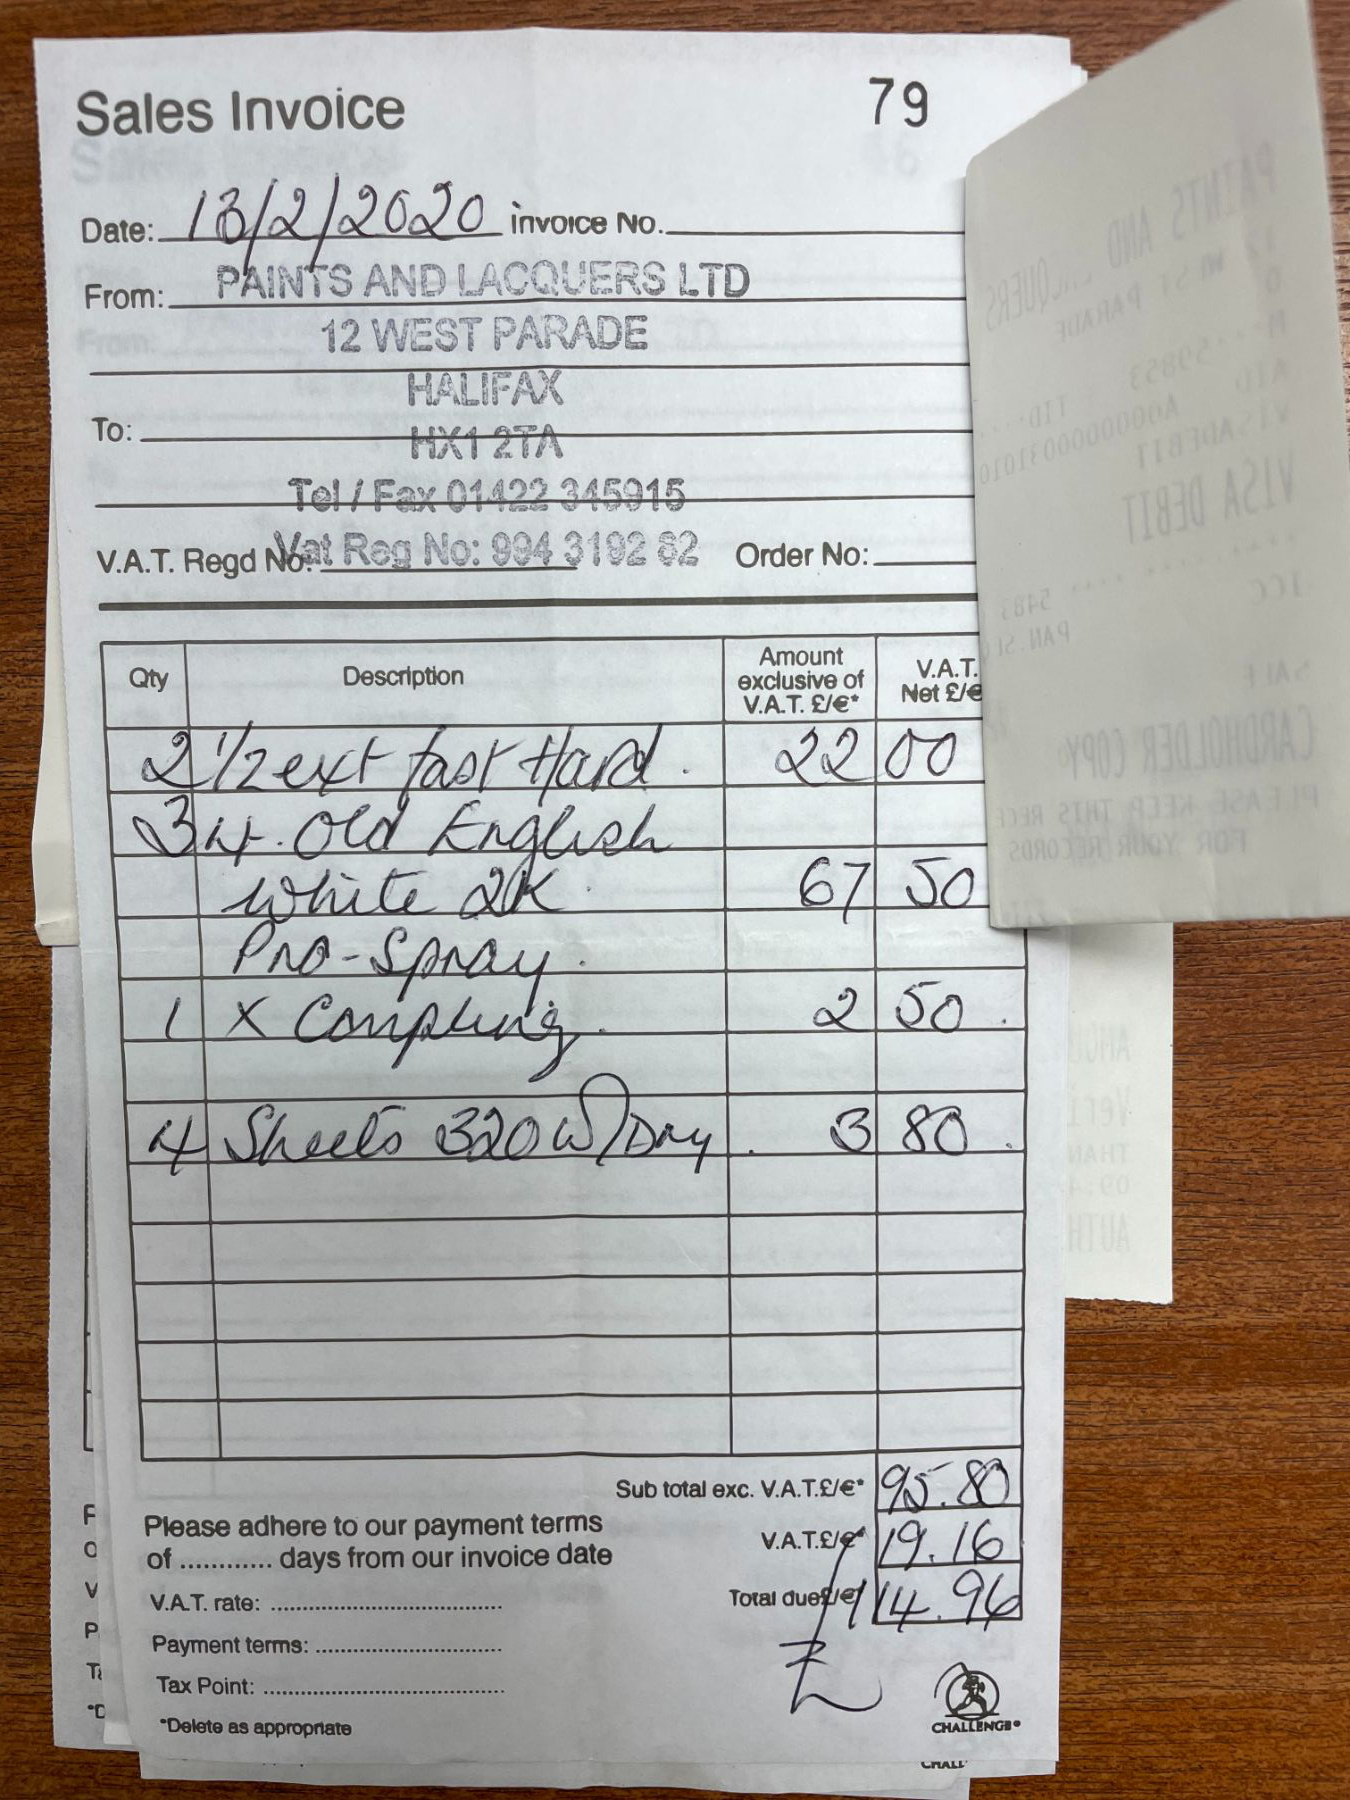 Sales Invoice 79
Date: 13/2/2020 invoice No.
From: PAINTS AND LACQUERS LTD
12 WEST PARADE
HALIFAX
To: HX1 2TA
Tel / Fax 01422 345915
V.A.T. Regd No. Vat Reg No: 994 3192 82 Order No:
Qty Description Amount exclusive of V.A.T. £/€* V.A.T. Net £/€
2 1/2 ext fast Hard. 22 00
3 4. Old English
White 2K. 67 50
Pro-Spray.
1 X Coupling. 2 50.
4 Sheets 320 W/Dry. 3 80.
Sub total exc. V.A.T.£/€* 95.80
Please adhere to our payment terms
of ............ days from our invoice date
V.A.T.£/€* 19.16
V.A.T. rate:
Total due£/€* 114.96
£
Payment terms:
Tax Point:
*Delete as appropriate
CHALLENGE®
PAINTS AND
LACQUERS
WEST PARADE
59853 TID
AID A0000000031010
VISADEBIT
VISA DEBIT
5483
PAN.SEQ
ICC
SALE
CARDHOLDER COPY
PLEASE KEEP THIS
FOR YOUR RECORDS